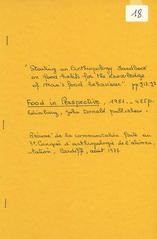 18
"Starting an Anthropology Sandbook
on food habits for the knowledge
of man's food behaviour" pp 313.32
Food in Perspective, 1981. - 425 p.
Edimbourg, John Donald publisher.
Résumé de la communication faite au
3e Congrès d'anthropologie de l'alimen-
tation, Cardiff, août 1977.